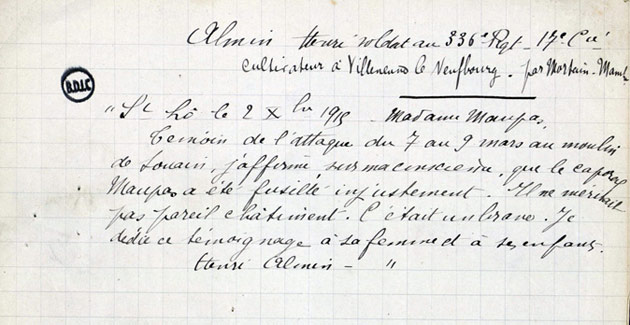 Almin Henri soldat au 336e Rgt - 17e Cie
cultivateur à le Neufbourg. par Mortain - Manche
B.D.I.C
"St Lô le 2 Xbre 1915 Madame Maupas,
Témoin de l'attaque du 7 au 9 mars au moulin
de Souain. j'affirme, sur ma conscience, que le caporal
Maupas a été fusillé injustement. Il ne méritait
pas pareil châtiment. C'était un brave. Je
dédie ce témoignage à sa femme et à ses enfants.
Henri Almin - "